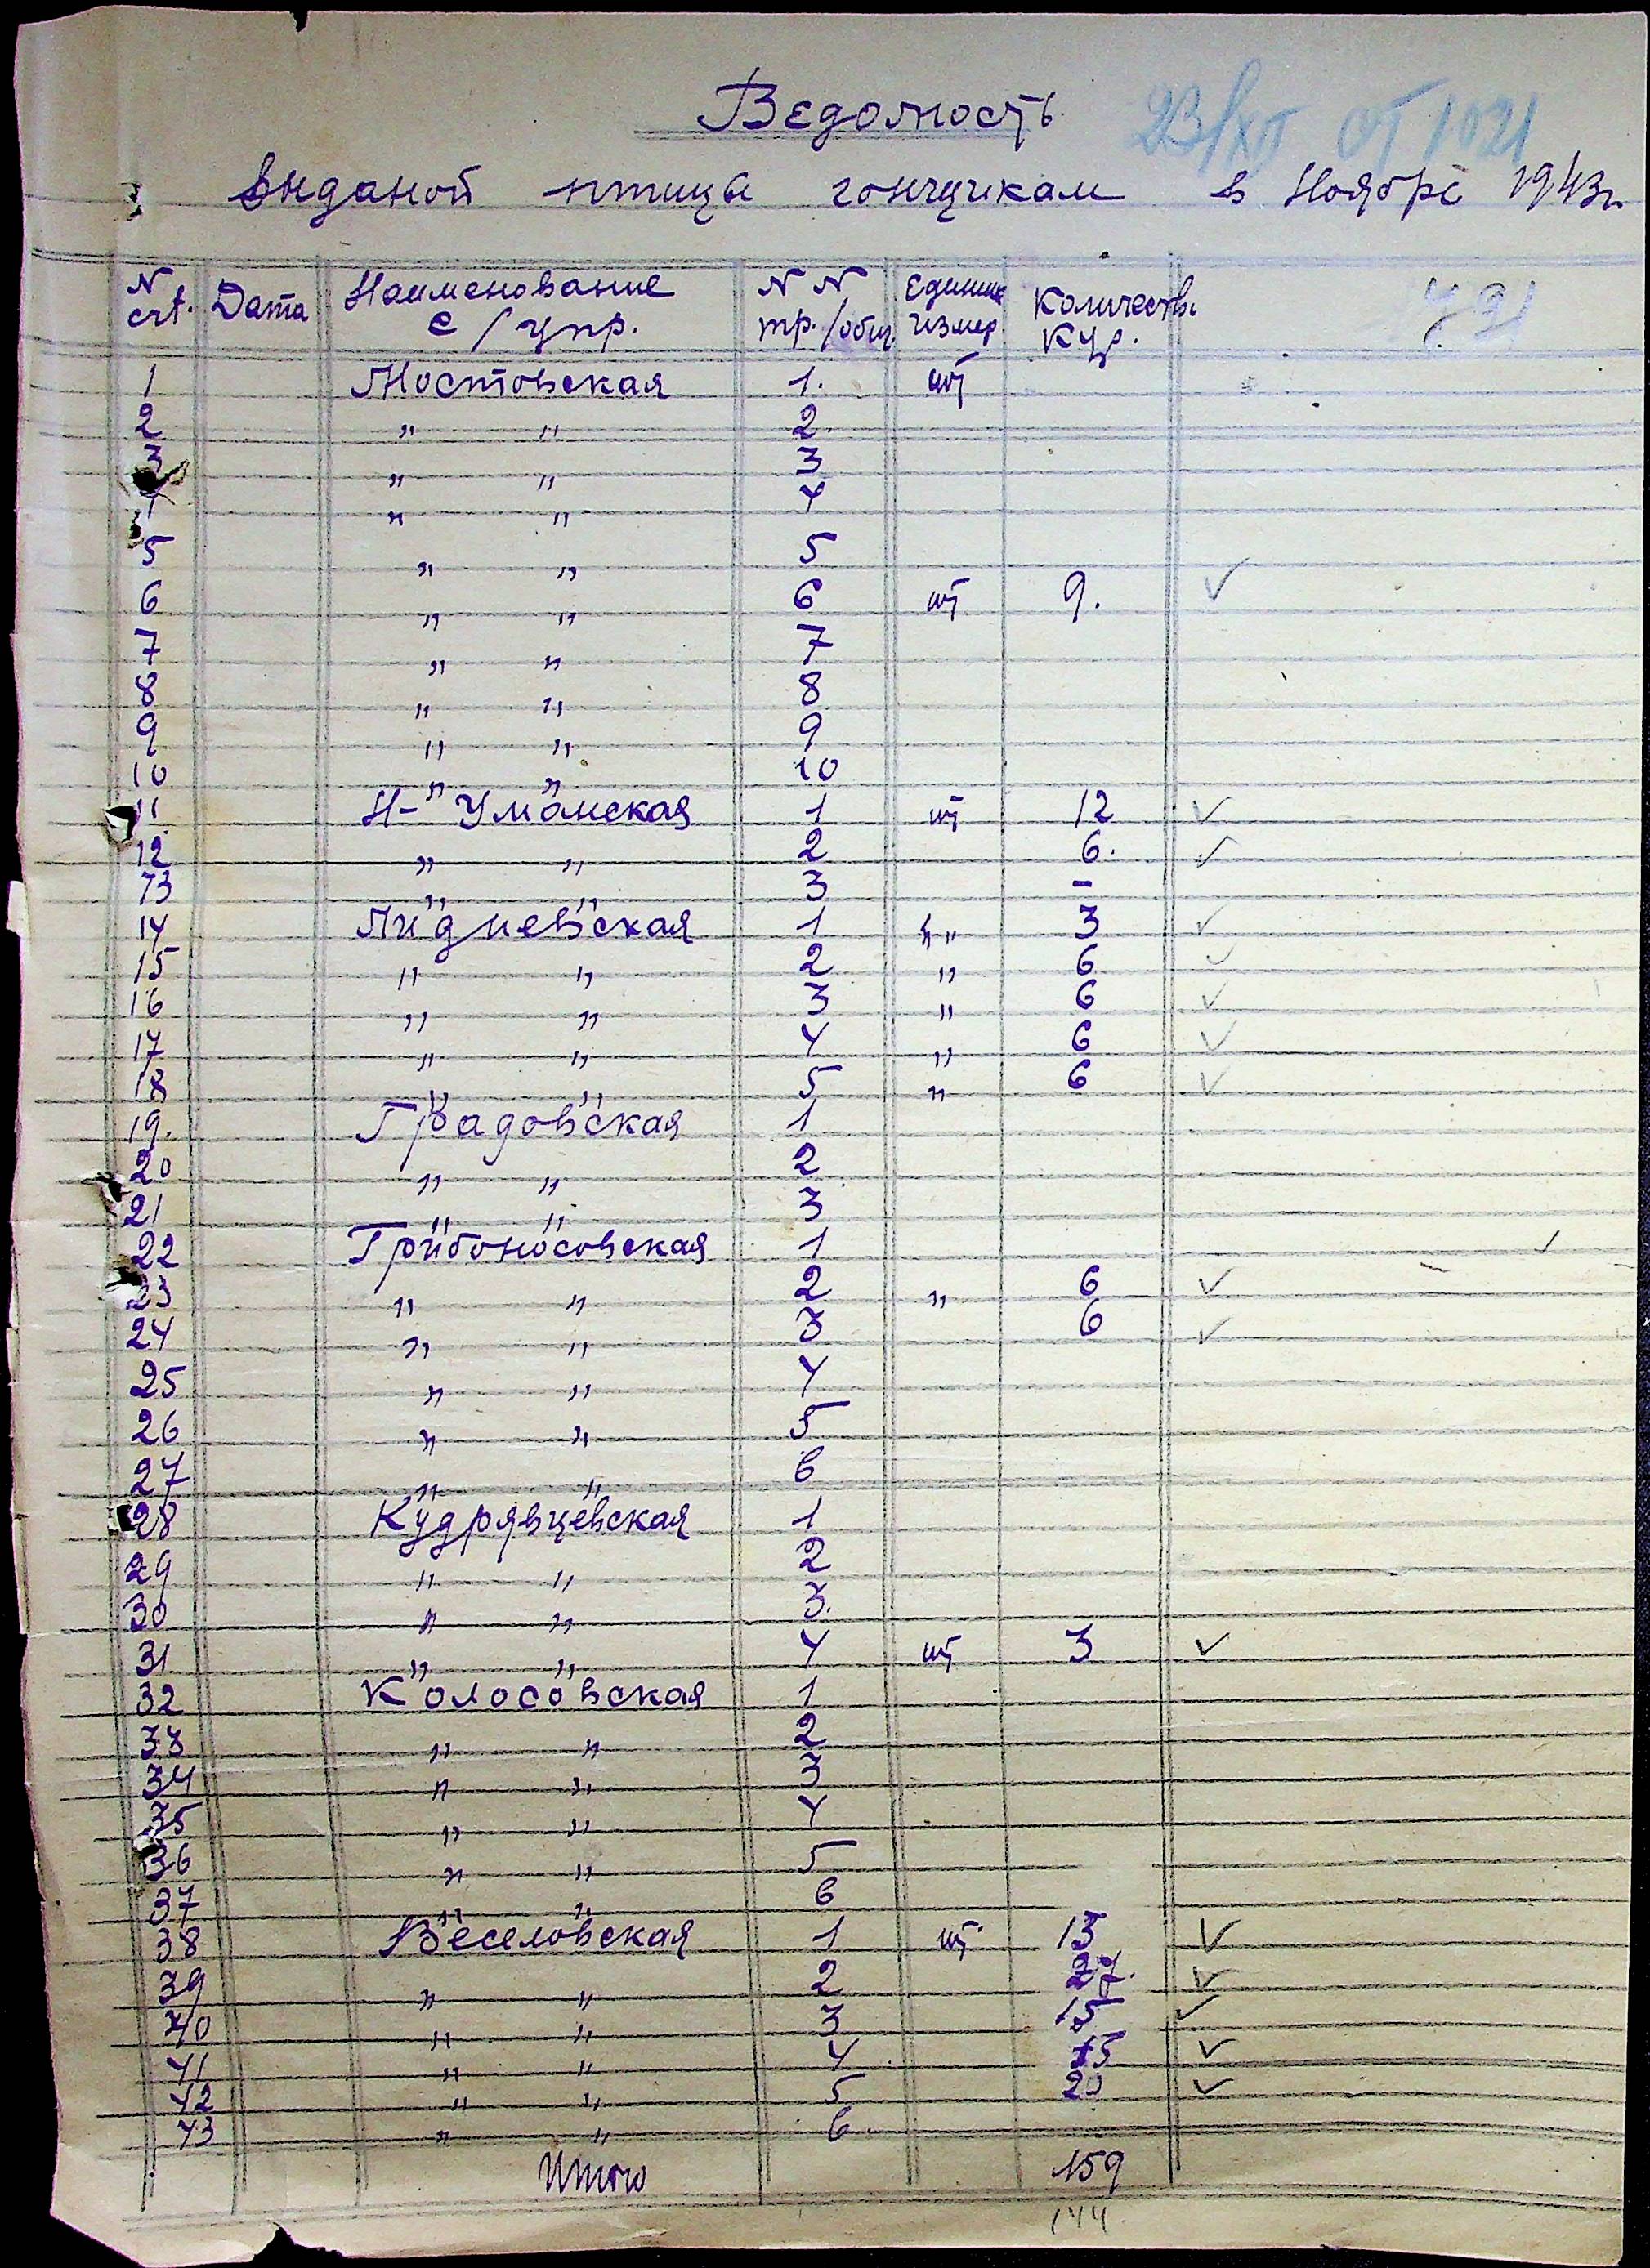 Ведомость 23/XII от 1021
выданой птицы гонщикам в Ноябре 1943 г.
N Дата Наименование N N Единиц Количеств.
сч. с/упр. тр./общ. измер. Кур.
1 Мостовская 1. шт
2 „ „ 2.
3 „ „ 3
4 „ „ 4
5 „ „ 5
6 „ „ 6 шт 9. ✓
7 „ „ 7
8 „ „ 8
9 „ „ 9
10 „ „ 10
11 Н-Уманская 1 шт 12 ✓
12 „ „ 2 6. ✓
13 „ „ 3 –
14 Лидиевская 1 „ 3 ✓
15 „ „ 2 „ 6 ✓
16 „ „ 3 „ 6 ✓
17 „ „ 4 „ 6 ✓
18 „ „ 5 „ 6 ✓
19. Градовская 1
20 „ „ 2
21 „ „ 3
22 Трибоносовская 1
23 „ „ 2 „ 6 ✓
24 „ „ 3 6 ✓
25 „ „ 4
26 „ „ 5
27 „ „ 6
28 Кудрявцевская 1
29 „ „ 2
30 „ „ 3.
31 „ „ 4 шт 3 ✓
32 Колосовская 1
33 „ „ 2
34 „ „ 3
35 „ „ 4
36 „ „ 5
37 „ „ 6
38 Веселовская 1 шт 13 ✓
39 „ „ 2 27. ✓
40 „ „ 3 15 ✓
41 „ „ 4 15 ✓
42 „ „ 5 20 ✓
43 „ „ 6.
Итого 159
144